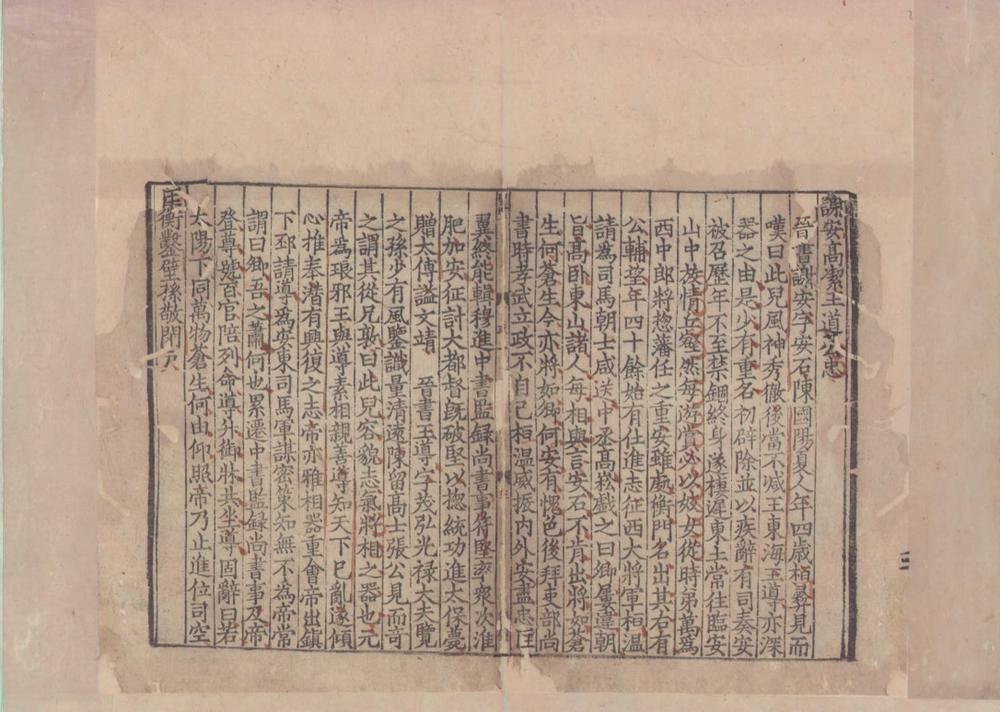 謝安高潔王導公忠
晉書謝安字安石陳國陽夏人年四歲桓彛見而
嘆曰此兒風神秀徹後當不減王東海王導亦深
器之由是少有重名初辟除並以疾辭有司奏安
被召歷年不至禁錮終身遂棲遲東土常往臨安
山中放情丘壑然每游賞必以妓女從時弟萬爲
西中郎將惣藩任之重安雖處衡門名出其右有
公輔望年四十餘始有仕進志征西大將軍桓溫
請爲司馬朝士咸送中丞高崧戲之曰卿屢違朝
旨高卧東山諸人每相與言安石不肯出將如蒼
生何蒼生今亦將如卿何安有愧色後拜吏部尚
書時孝武立政不自己桓溫威振内外安盡忠匡
翼終能輯穆進中書監録尚書事苻堅率衆次淮
肥加安征討大都督旣破堅以惣統功進太保薨
贈太傅謚文靖 晉書王導字茂弘光禄大夫覽
之孫少有風鑒識量清遠陳留高士張公見而奇
之謂其從兄敦曰此兒容貌志氣將相之器也元
帝爲琅邪王與導素相親善導知天下已亂遂傾
心推奉潛有興復之志帝亦雅相器重會帝出鎮
下邳請導爲安東司馬軍謀密策知無不為帝常
謂曰卿吾之蕭何也累遷中書監録尚書事及帝
登尊號百官陪列命導升御牀共坐導固辭曰若
太陽下同萬物蒼生何由仰照帝乃止進位司空
匡衡鑿壁孫敬閉戶